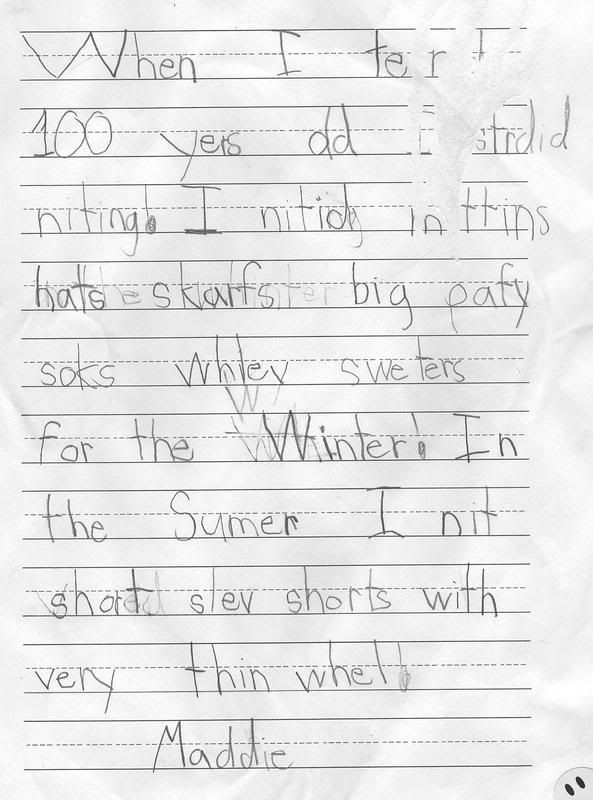 When I ter
100 yers old I strdid
niting. I in
hats skarfs big pafy
soks whley sweters
for the Winter. In
the Sumer I nit
short slev shorts with
very thin whel.
Maddie